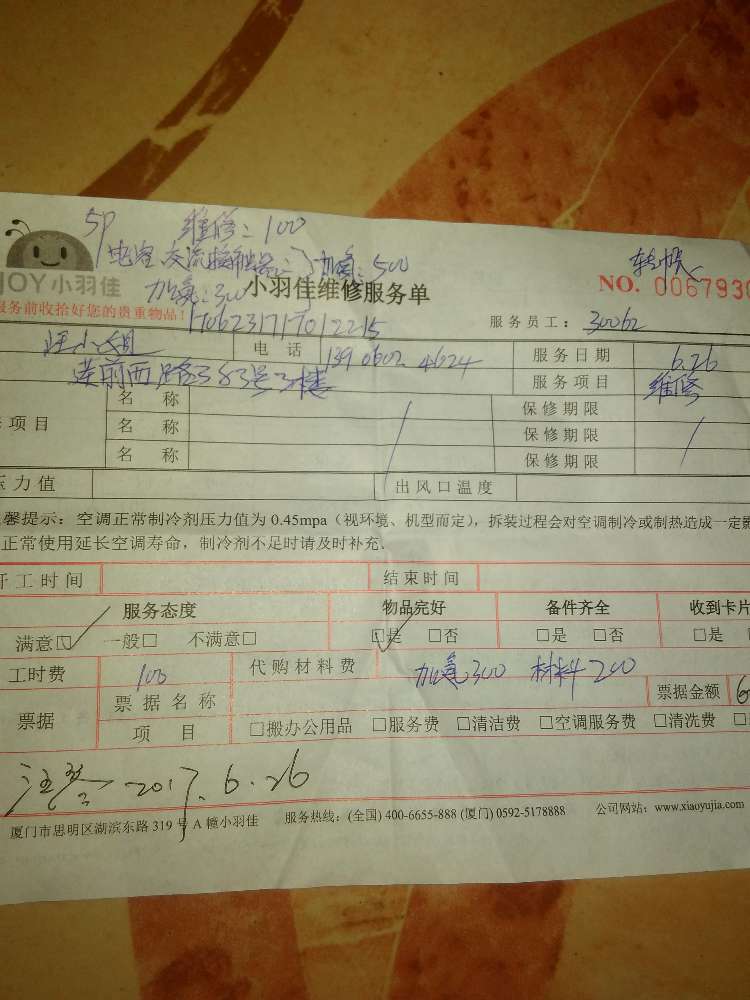 5P 维修：100
电容 交流接触器：加氟：500 转帐
加氟：300
JOY小羽佳 小羽佳维修服务单 NO. 0067930
服务前收拾好您的贵重物品！
1706231717012215 服务员工：30062
汪小姐 电话 139 0602 4624 服务日期 6.26
莲前西路383号3楼 服务项目 维修
名称 保修期限
项目 名称 保修期限
名称 保修期限
压力值 出风口温度
馨提示：空调正常制冷剂压力值为 0.45mpa（视环境、机型而定），拆装过程会对空调制冷或制热造成一定影
正常使用延长空调寿命，制冷剂不足时请及时补充.
开工时间 结束时间
服务态度 物品完好 备件齐全 收到卡片
满意☑ 一般□ 不满意□ ☑是 □否 □是 □否 □是
工时费 100 代购材料费 加氟300 材料200
票据 票据名称 票据金额
项目 □搬办公用品 □服务费 □清洁费 □空调服务费 □清洗费
2017.6.26
厦门市思明区湖滨东路 319 号 A 幢小羽佳 服务热线：(全国) 400-6655-888 (厦门) 0592-5178888 公司网站：www.xiaoyujia.com